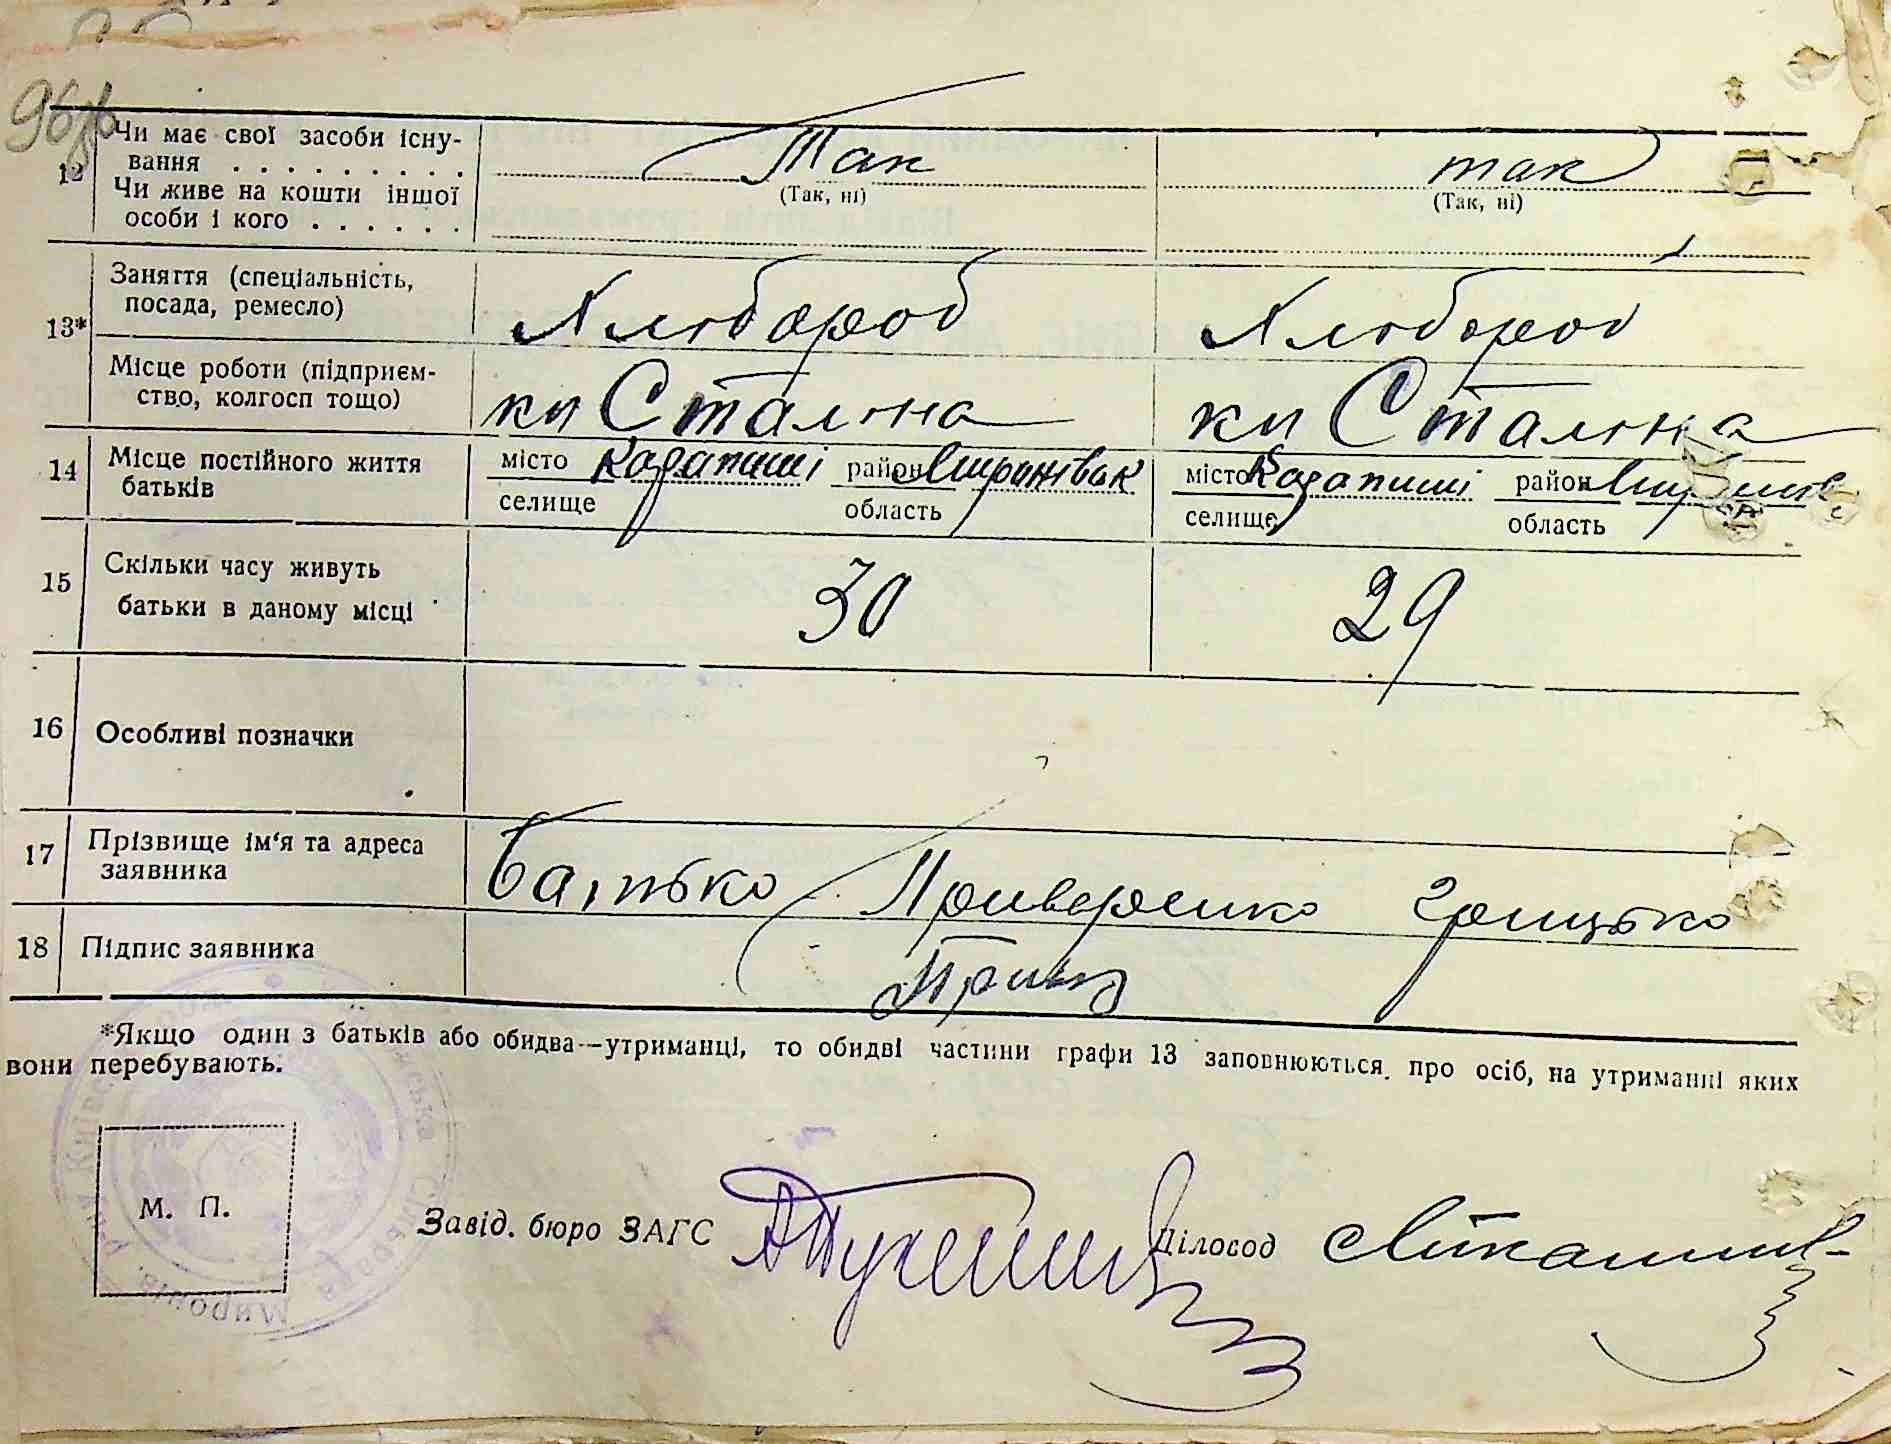 96
12 Чи має свої засоби існу-
вання . . . . . . . . . . Так так
Чи живе на кошти іншої (Так, ні) (Так, ні)
особи і кого . . . . . .
13* Заняття (спеціальність,
посада, ремесло) Хлібороб Хлібороб
Місце роботи (підприєм-
ство, колгосп тощо) кп Сталіна кп Сталіна
14 Місце постійного життя місто район місто район
батьків селище область селище область
15 Скільки часу живуть
батьки в даному місці 30 29
16 Особливі позначки
17 Прізвище ім'я та адреса
заявника Батько Грицько
18 Підпис заявника
*Якщо один з батьків або обидва—утриманці, то обидві частини графи 13 заповнюються про осіб, на утриманні яких
вони перебувають.
М. П.
Завід. бюро ЗАГС Діловод